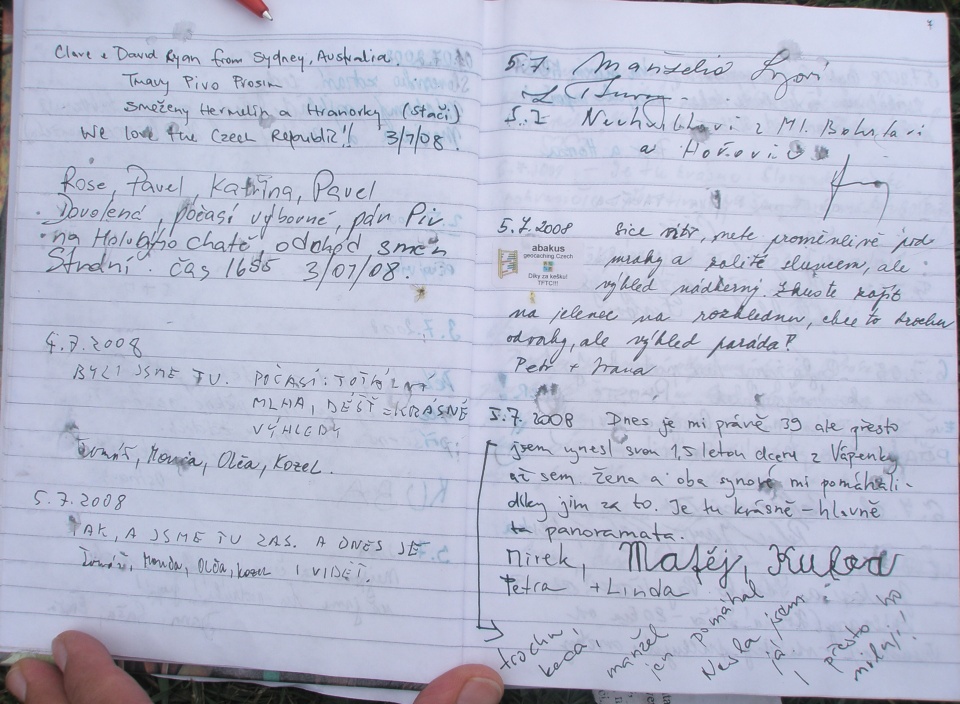 Clare & David Ryan from Sydney, Australia
Tmavy Pivo Prosim
Smeženy Hermelin a Hranorky (stačí)
We love the Czech Republic!! 3/7/08.
Rose, Pavel, Katřina, Pavel
Dovolená, počasí výborné, pár Piv
na Holubího chatě, odchod směr
čas 1655 3/07/08.
4.7.2008
BYLI JSME TU. POČASÍ: TOTÁLNÍ
MLHA, DÉŠŤ = KRÁSNÉ
VÝHLEDY
Tomáš, Monča, Olča, Kozel.
5.7.2008
TAK, A JSME TU ZAS. A DNES JE
Tomáš, Monča, Olča, Kozel I VIDĚT.
7
5.7. Manželé
5.7 z Ml. Boleslavi
a Hořovic
5.7.2008 Sice větr, nete proměnlivé pod
mraky a zalité sluncem, ale
výhled nádherný. Zkuste zajít
na jelenec na rozhlednu, chce to trochu
odvahy, ale výhled paráda!
Petr + Ivana
abakus
geocaching Czech
Díky za kešku!
TFTC!!!
5.7.2008 Dnes je mi právě 39 ale přesto
jsem vynesl svou 1,5 letou dceru z Vápenky
až sem. žena a oba synové mi pomáhali -
díky jim za to. Je tu krásně - hlavně
ta panoramata.
Mirek, Matěj, Kuba
Petra + Linda
trochu
kecá,
manžel
jen pomáhal
Nesla jsem
já !
přesto ho
miluji!